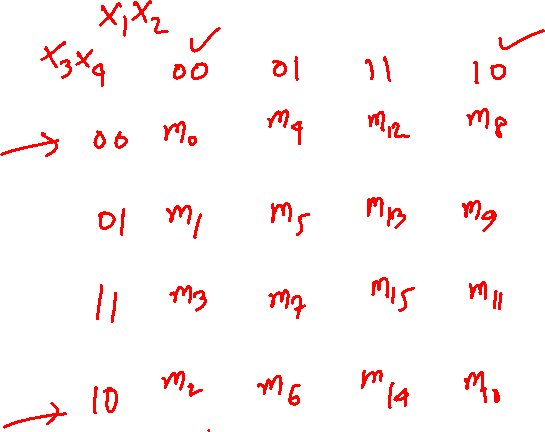 X₁X₂
X₃X₄ 00 01 11 10
00 m₀ m₄ m₁₂ m₈
01 m₁ m₅ m₁₃ m₉
11 m₃ m₇ m₁₅ m₁₁
10 m₂ m₆ m₁₄ m₁₀